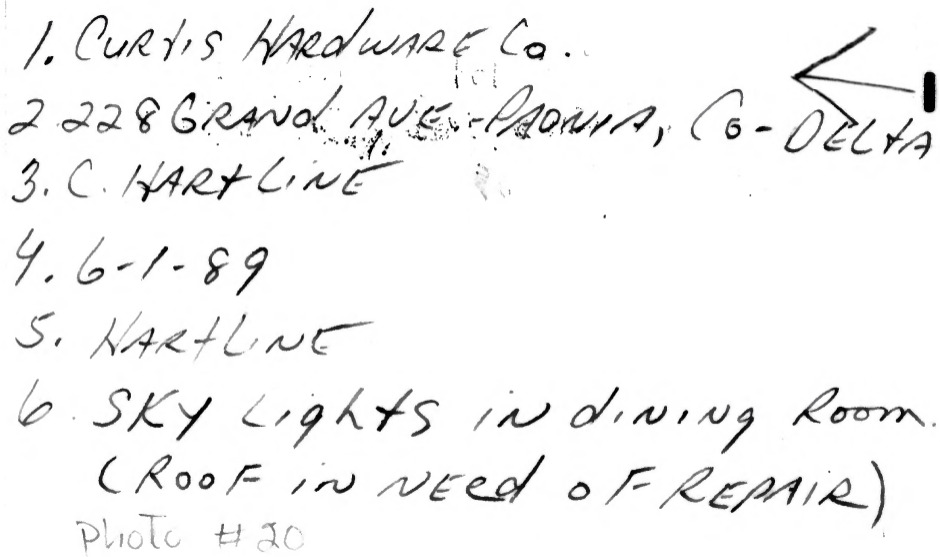 1. Curtis Hardware Co.
2 228 Grand Ave.-Paonia, Co-Delta
3. C. Hartline
4. 6-1-89
5. Hartline
6. Sky Lights in dining Room.
(Roof in need of Repair)
Photo #20